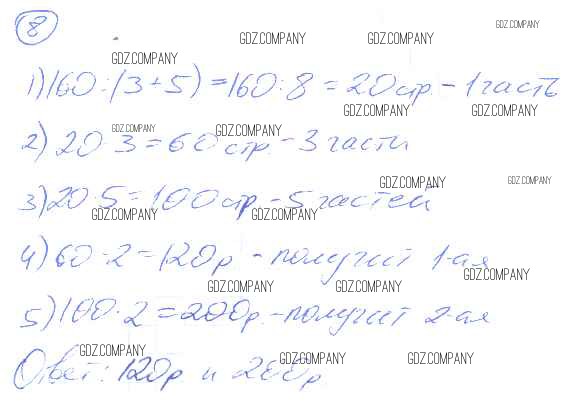 8
GDZ.COMPANY
GDZ.COMPANY GDZ.COMPANY
GDZ.COMPANY
1) 160 : (3 + 5) = 160 : 8 = 20 стр. - 1 часть
GDZ.COMPANY GDZ.COMPANY
GDZ.COMPANY GDZ.COMPANY
2) 20 · 3 = 60 стр. - 3 части
GDZ.COMPANY GDZ.COMPANY
3) 20 · 5 = 100 стр - 5 частей
GDZ.COMPANY GDZ.COMPANY
4) 60 · 2 = 120р. - получит 1-ая
GDZ.COMPANY
GDZ.COMPANY GDZ.COMPANY
5) 100 · 2 = 200р. - получит 2-ая
GDZ.COMPANY
GDZ.COMPANY GDZ.COMPANY
Ответ: 120р. и 200р.